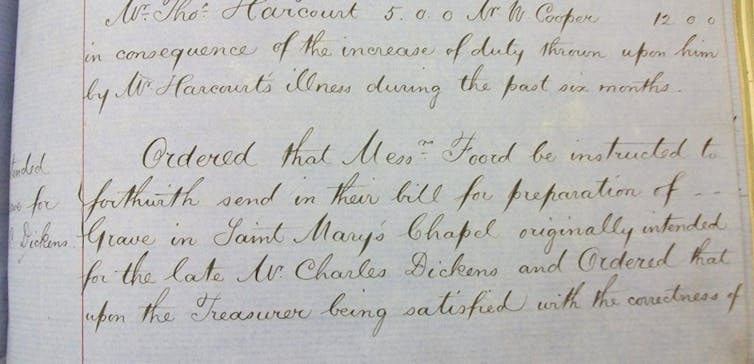 Mr. Thos. Harcourt 5. 0. 0 Mr W. Cooper 12 0 0
in consequence of the increase of duty thrown upon him
by Mr. Harcourt's illness during the past six months.
Ordered that Messrs. Foord be instructed to
forthwith send in their bill for preparation of --
Grave in Saint Mary's Chapel originally intended
for the late Mr. Charles Dickens and Ordered that
upon the Treasurer being satisfied with the correctness of
for
Dickens.